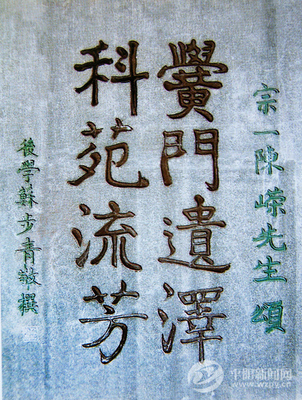 宗一陳嵘先生頌
黌門遺澤
科苑流芳
後學蘇步青敬撰
中明新聞网